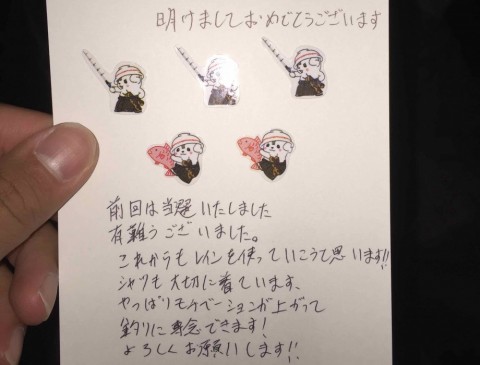 明けましておめでとうございます
前回は当選いたしました
有難うございました。
これからもレインを使っていこうと思います!!
シャツも大切に着ています、
やっぱりモチベーションが上がって
釣りに専念できます!
よろしくお願いします!!